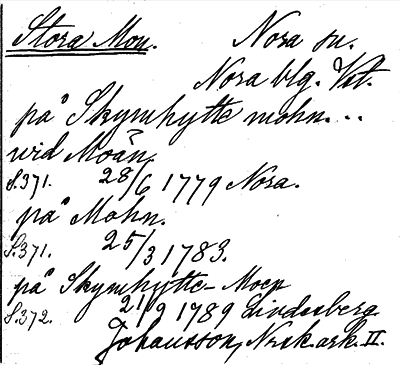 Stora Mon. Nora sn.
Nora blg. Vst.
på Skymhytte mohn...
wid Moån,
S.371. 28/6 1779 Nora.
på Mohn.
S.371. 25/3 1783.
på Skymhytte Moen
S.372. 21/9 1789 Lindesberg
Johansson, N:sk.ark. II.